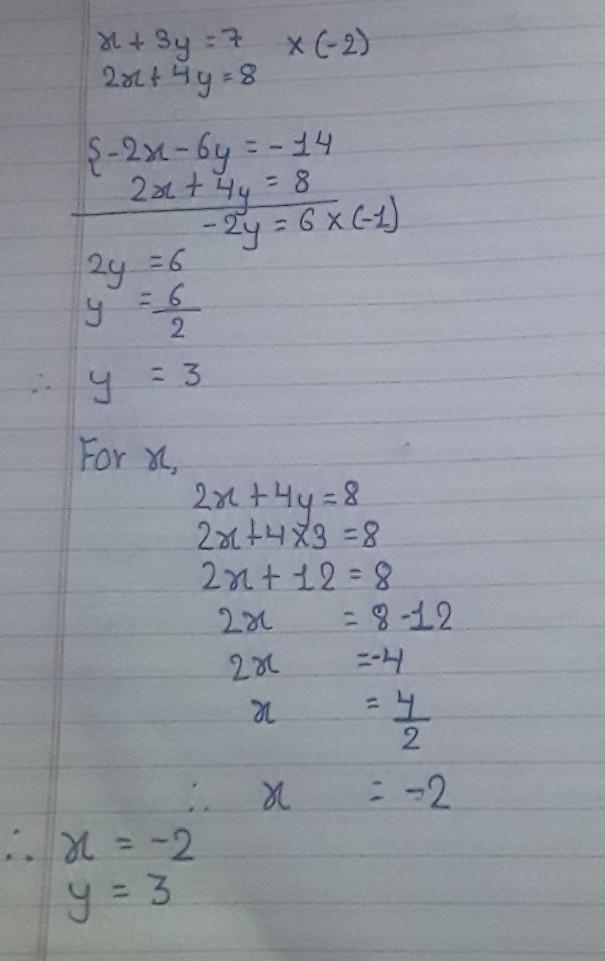 x + 3y = 7 × (-2)
2x + 4y = 8
{-2x - 6y = -14
2x + 4y = 8
-2y = 6 × (-1)
2y = 6
y = 6/2
∴ y = 3
For x,
2x + 4y = 8
2x + 4×3 = 8
2x + 12 = 8
2x = 8 - 12
2x = -4
x = 4/2
∴ x = -2
∴ x = -2
y = 3